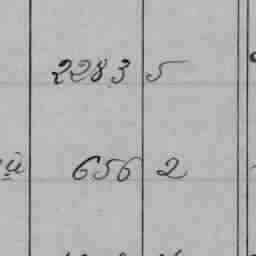 2283 5
й 656 2